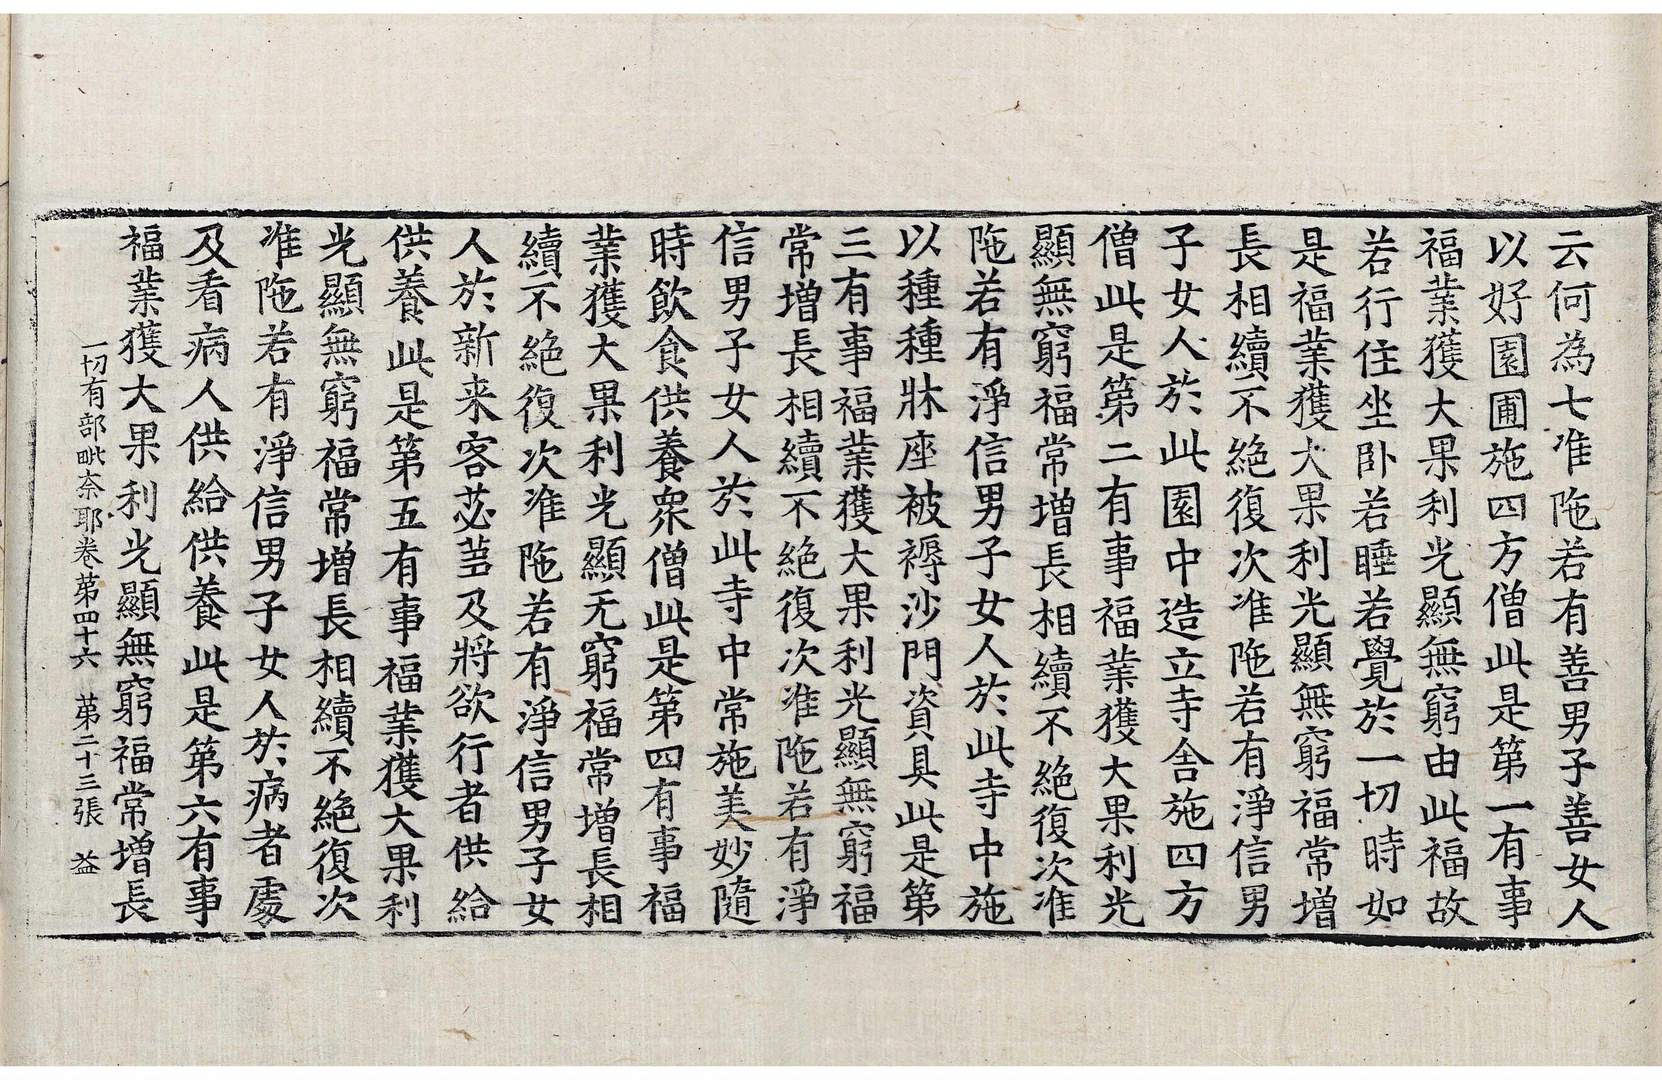 云何為七准陁若有善男子善女人
以好園圃施四方僧此是第一有事
福業獲大果利光顯無窮由此福故
若行住坐卧若睡若覺於一切時如
是福業獲大果利光顯無窮福常增
長相續不絶復次准陁若有淨信男
子女人於此園中造立寺舍施四方
僧此是第二有事福業獲大果利光
顯無窮福常增長相續不絶復次准
陁若有淨信男子女人於此寺中施
以種種牀座被褥沙門資具此是第
三有事福業獲大果利光顯無窮福
常增長相續不絶復次准陁若有淨
信男子女人於此寺中常施美妙隨
時飲食供養衆僧此是第四有事福
業獲大果利光顯无窮福常增長相
續不絶復次准陁若有淨信男子女
人於新来客苾芻及將欲行者供給
供養此是第五有事福業獲大果利
光顯無窮福常增長相續不絶復次
准陁若有淨信男子女人於病者處
及看病人供給供養此是第六有事
福業獲大果利光顯無窮福常增長
一切有部毗奈耶卷第四十六 第二十三張 益